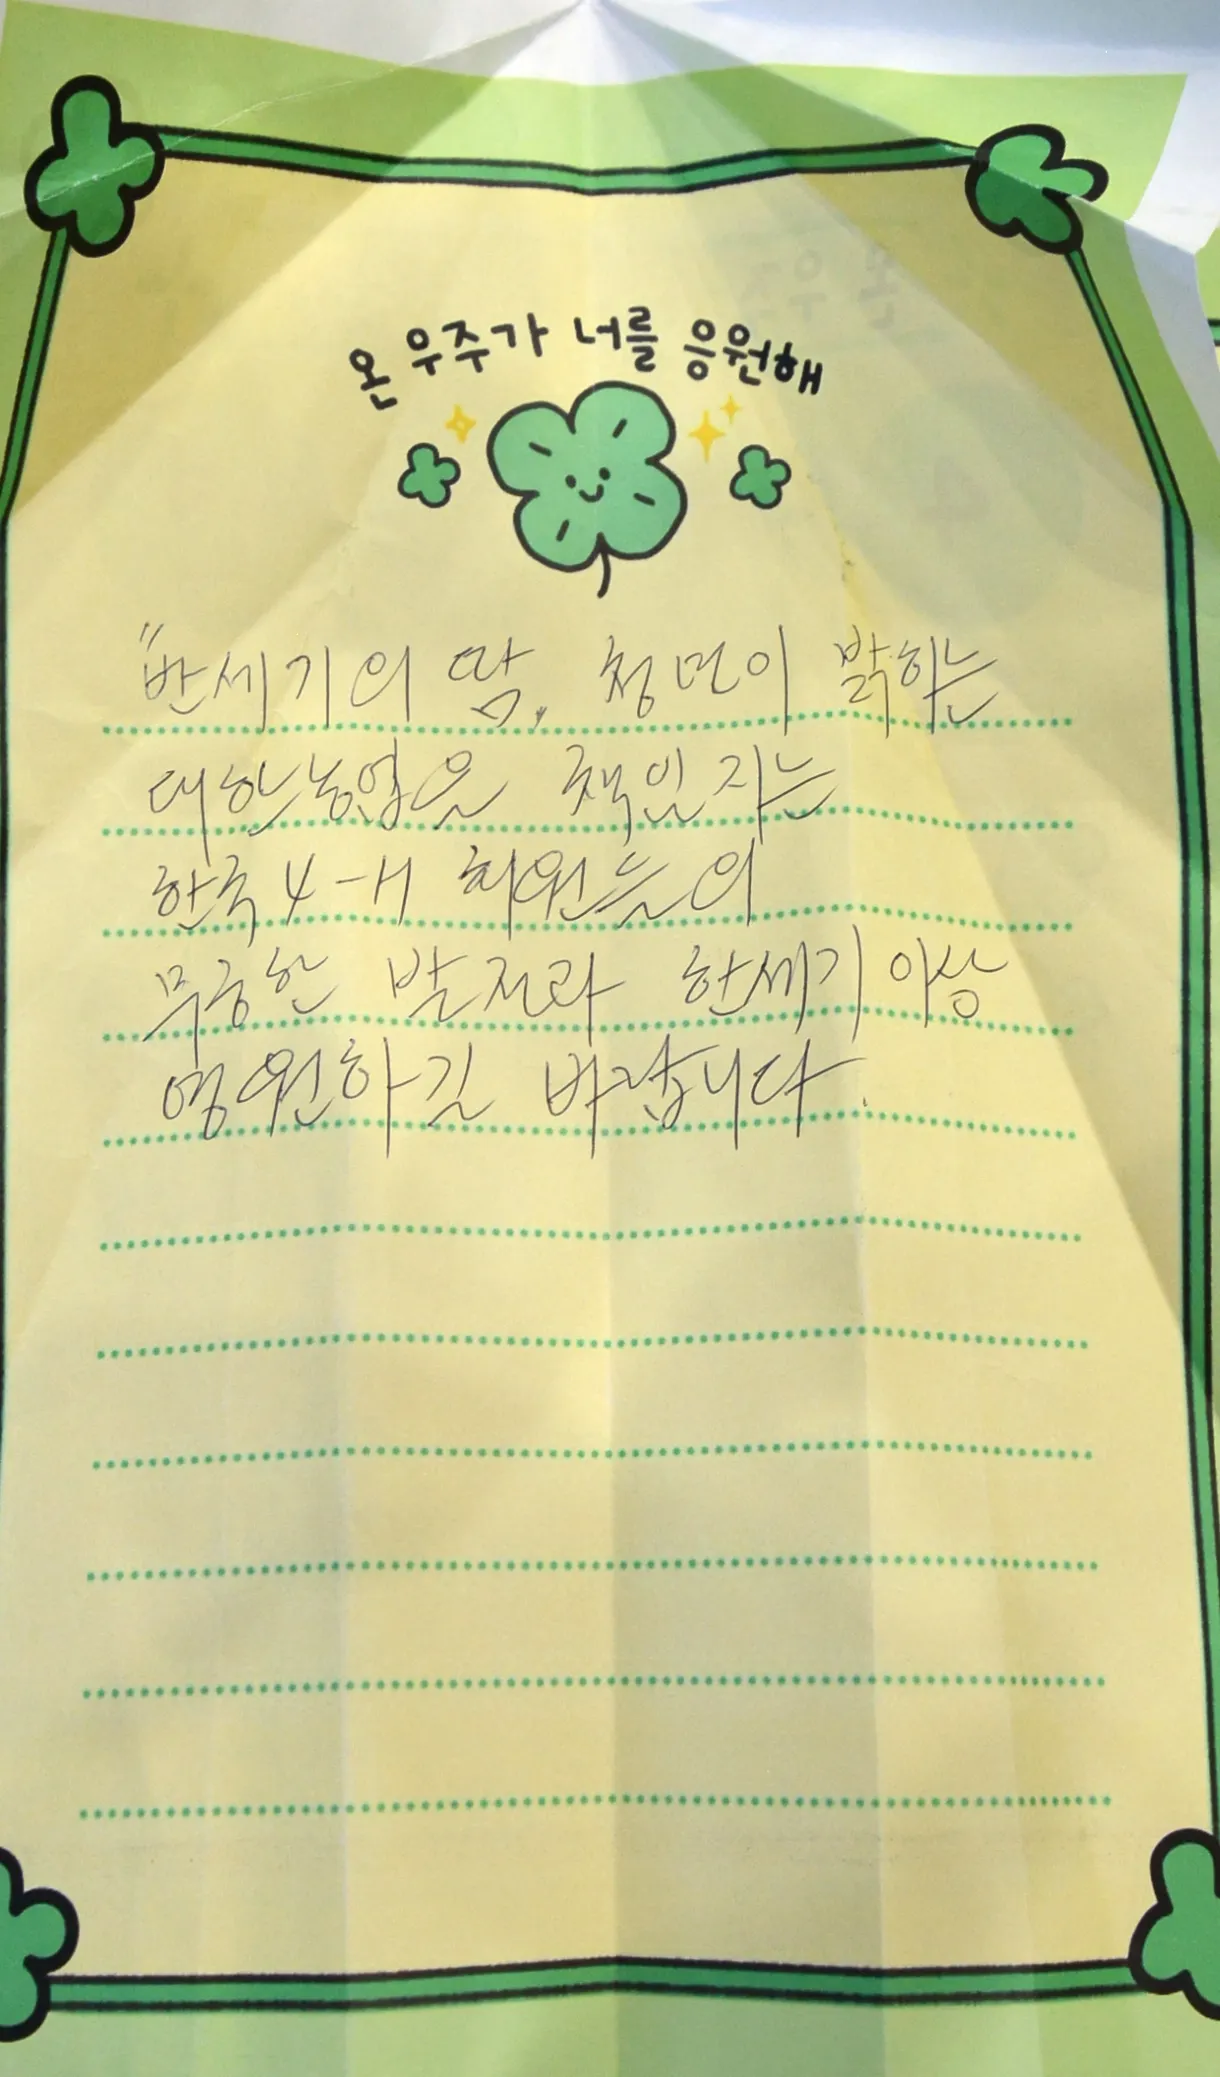 온 우주가 너를 응원해
"반세기의 땀, 청년이 밝히는
대한농업을 책임지는
한국4-H 회원들의
무궁한 발전과 한세기 이상
영원하길 바랍니다.